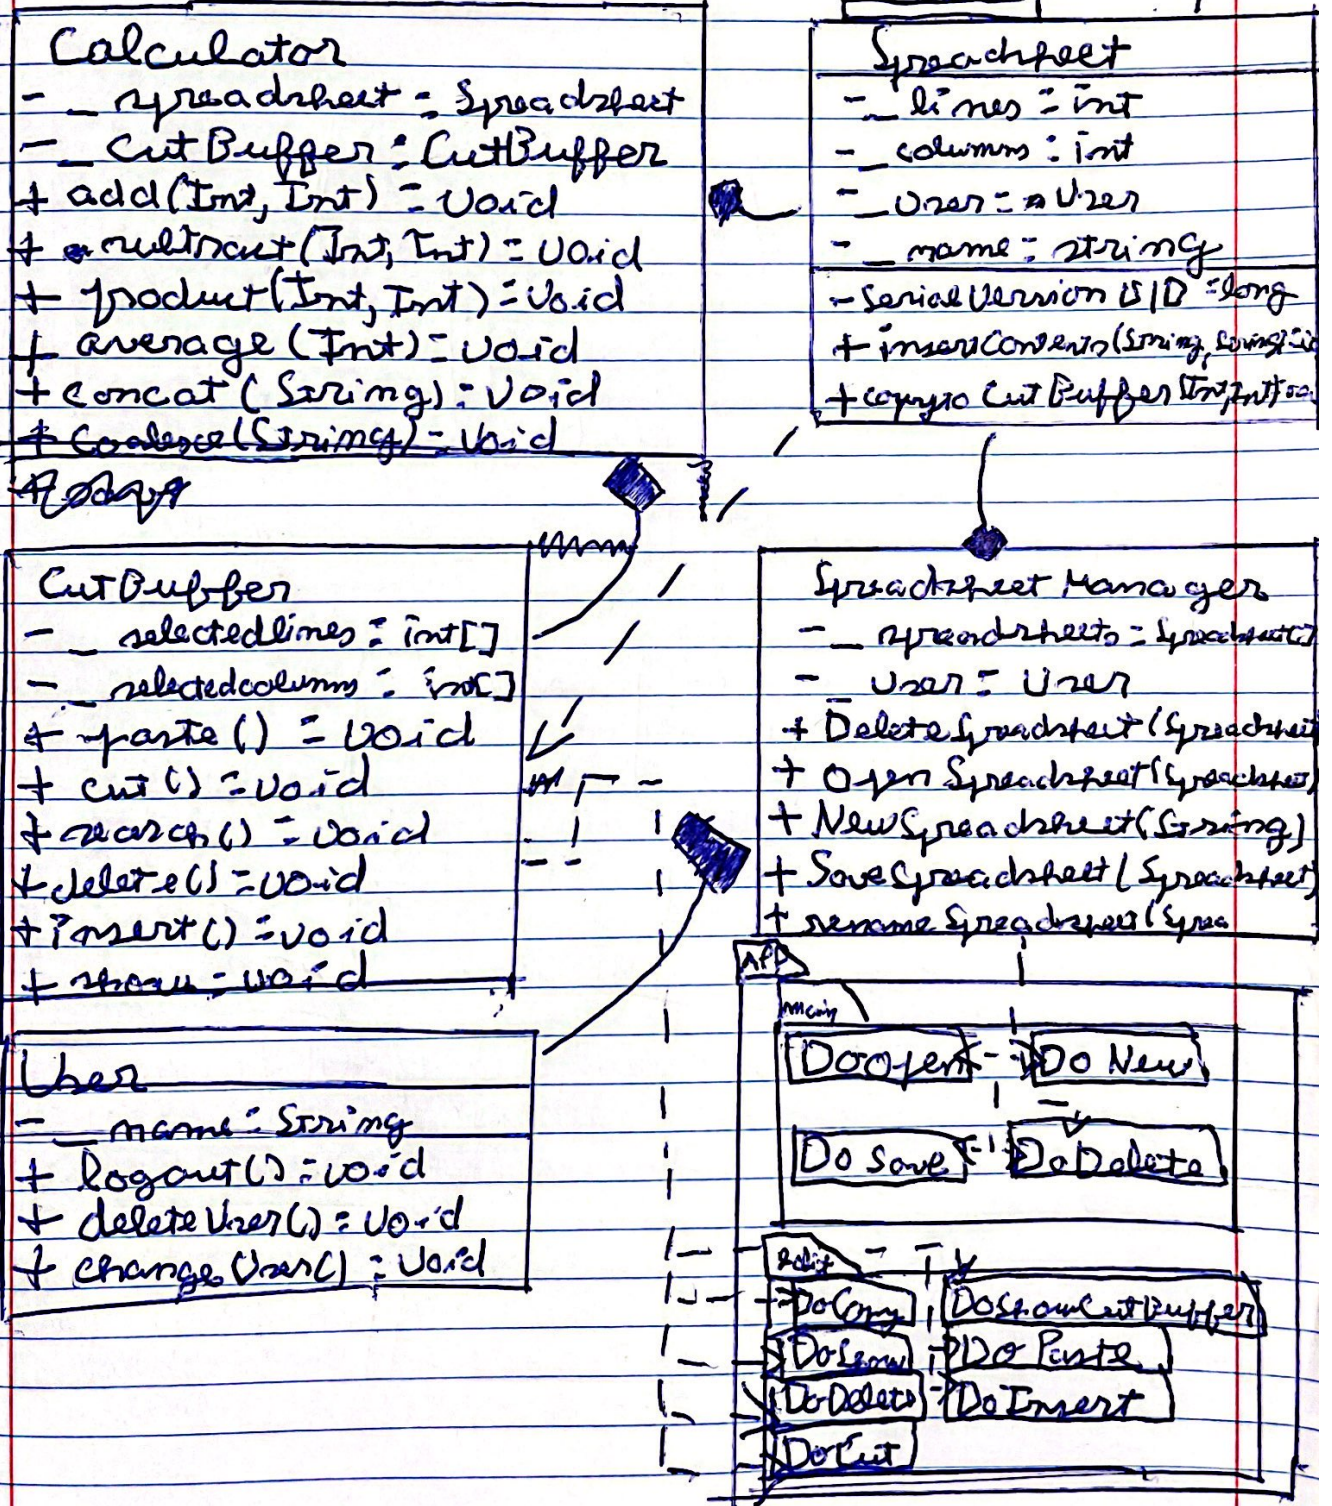 Calculator
- _ spreadsheet : Spreadsheet
- _ CutBuffer : CutBuffer
+ add(Int, Int) : Void
+ subtract(Int, Int) : Void
+ product(Int, Int) : Void
+ average (Int) : Void
+ concat (String) : Void
+ Coalesce(String) : Void
Spreadsheet
- _ lines : int
- _ columns : int
- _ User : User
- _ name : string
- Serial Version UID : long
+ insertContents(String, String)
+ copyto Cut Buffer (Int, Int)
CutBuffer
- _ selectedlines : int[]
- _ selectedcolumns : int[]
+ paste () : Void
+ cut () : Void
+ search () : Void
+ delete() : Void
+ insert () : Void
+ show : void
Spreadsheet Manager
- _ spreadsheets : Spreadsheet[]
- _ User : User
+ Delete Spreadsheet (Spreadsheet
+ Open Spreadsheet (Spreadsheet)
+ New Spreadsheet (String)
+ Save Spreadsheet (Spreadsheet)
+ rename Spreadsheet (Sprea
User
- _ name : String
+ logout () : void
+ delete User() : Void
+ change User() : Void
APP
main
DoOpen Do New
Do Save Do Delete
Edit
DoCopy DoShowCutBuffer
Do Paste
DoDelete DoInsert
DoCut